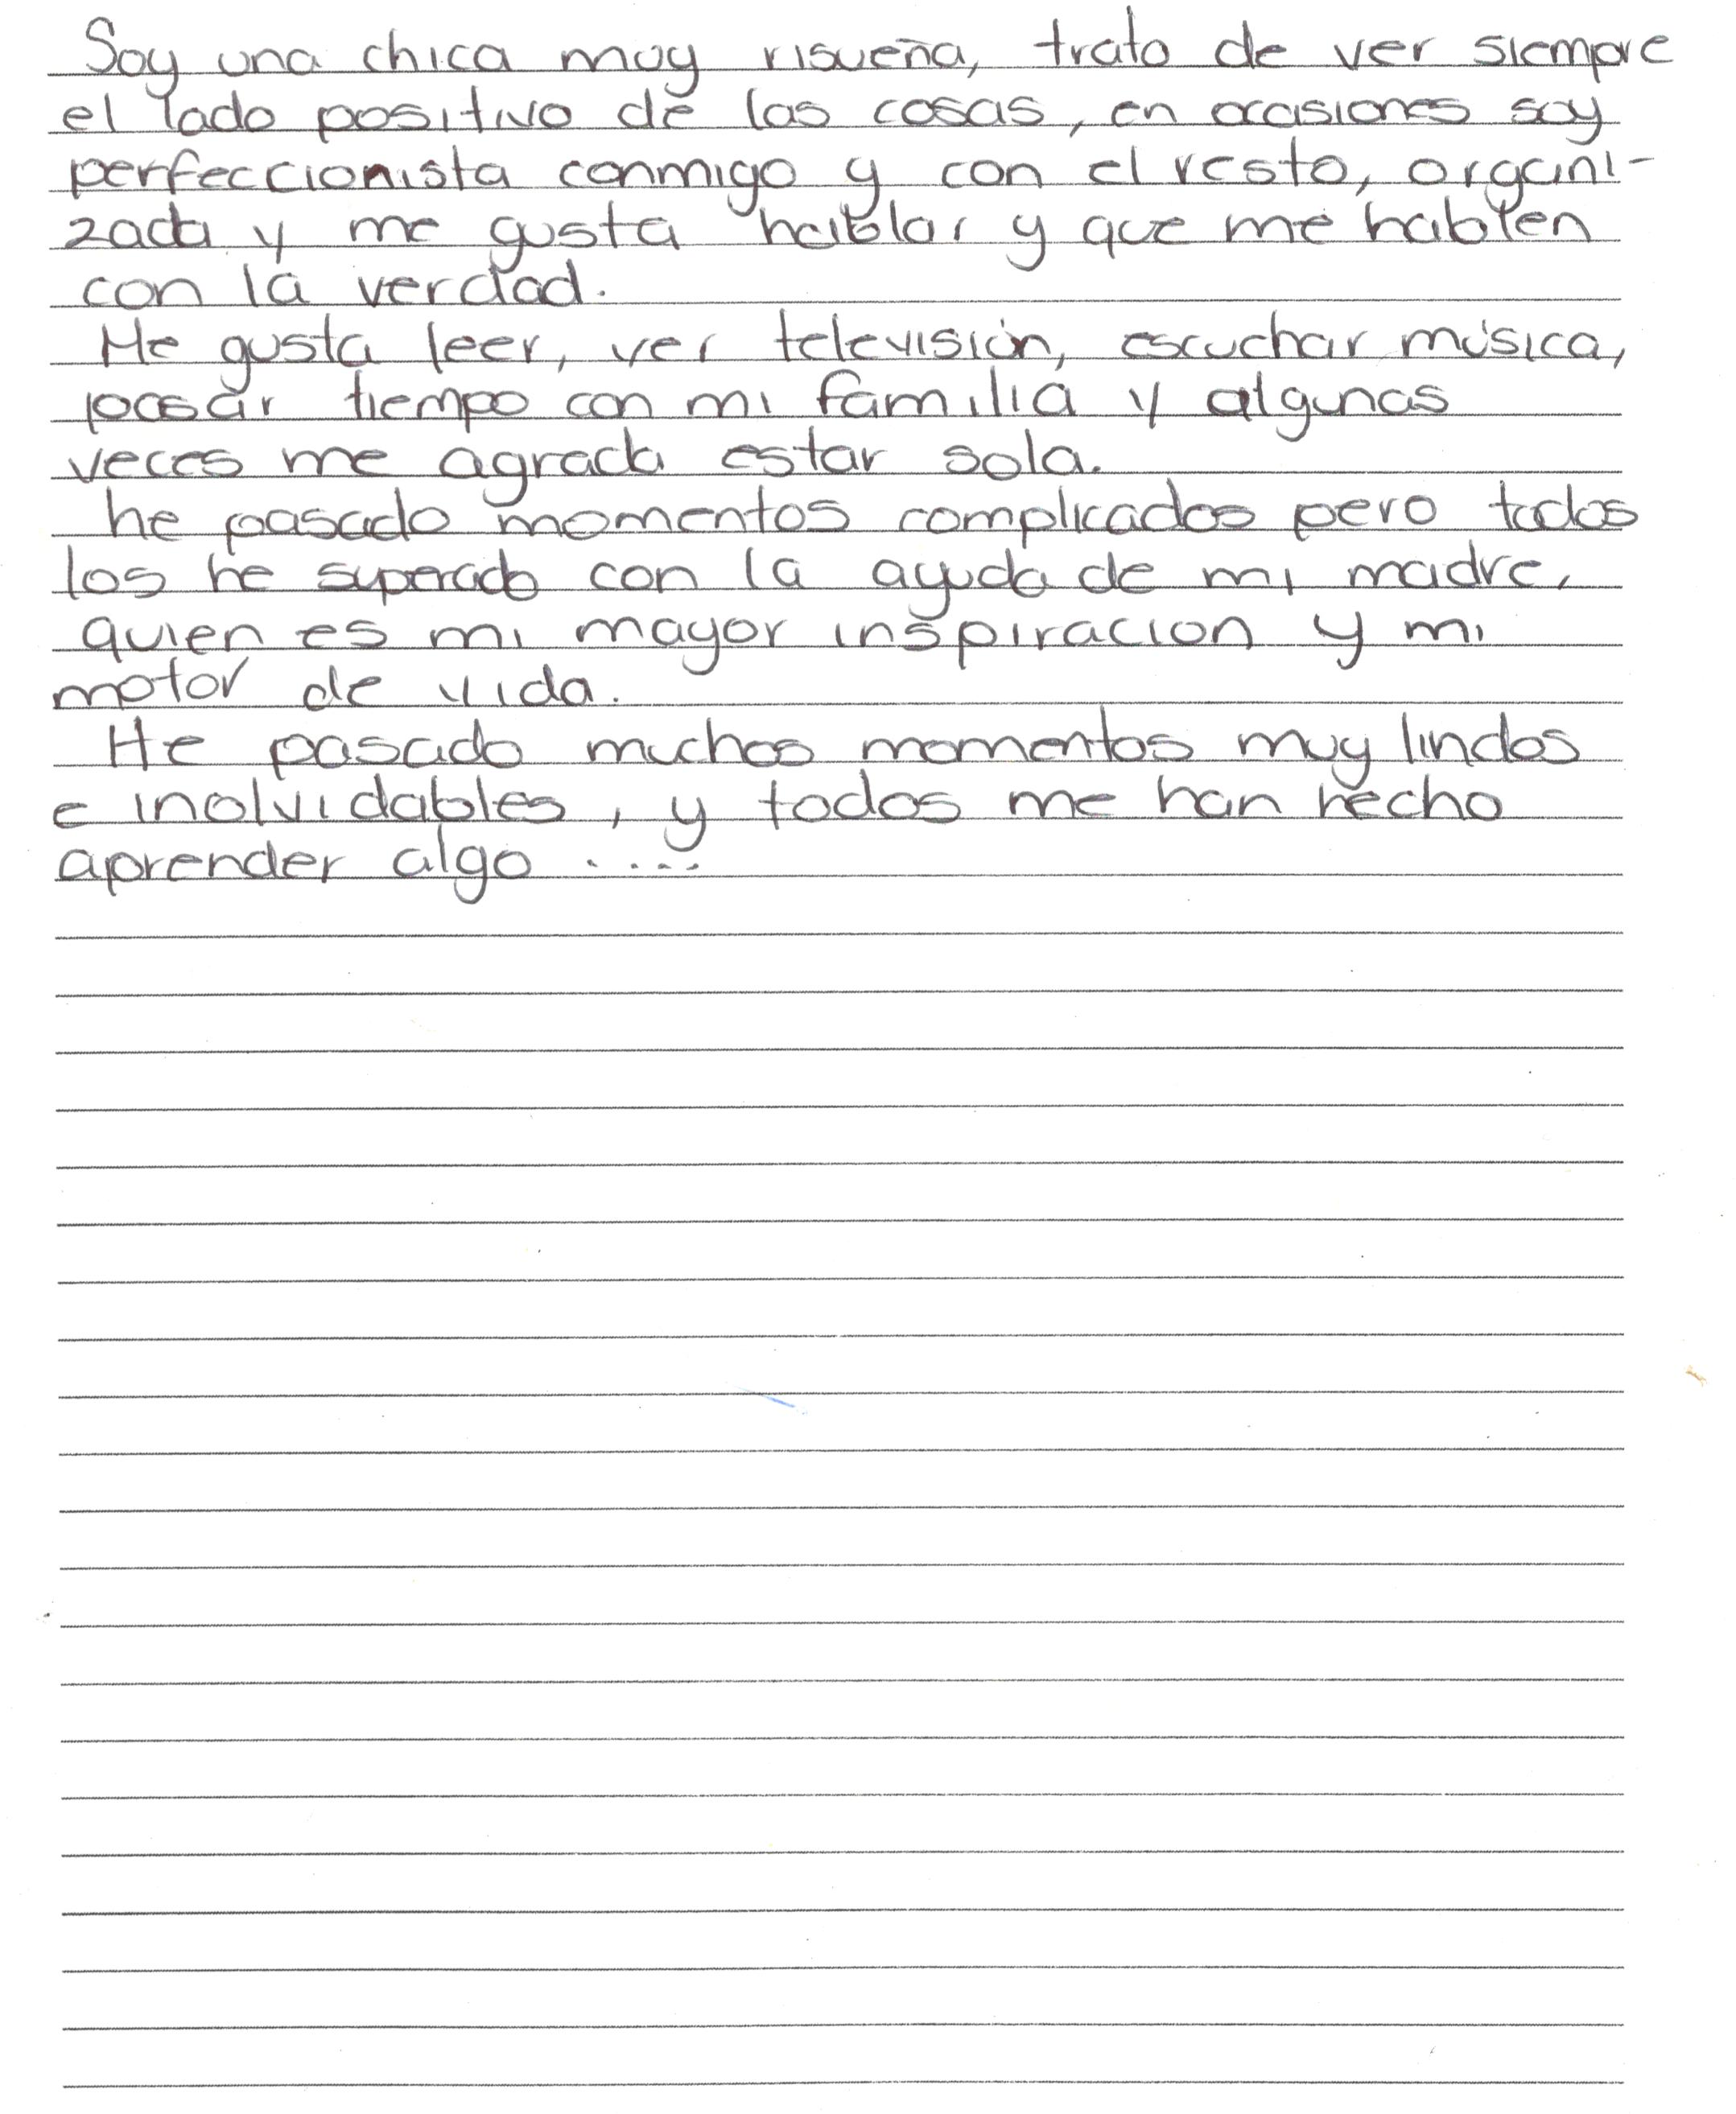 Soy una chica muy risueña, trato de ver siempre
el lado positivo de las cosas, en ocasiones soy
perfeccionista conmigo y con el resto, organi-
zada y me gusta hablar y que me hablen
con la verdad.
Me gusta leer, ver televisión, escuchar música,
pasar tiempo con mi familia y algunas
veces me agrada estar sola.
he pasado momentos complicados pero todos
los he superado con la ayuda de mi madre,
quien es mi mayor inspiracion y mi
motor de vida.
He pasado muchos momentos muy lindos
e inolvidables, y todos me han hecho
aprender algo ....